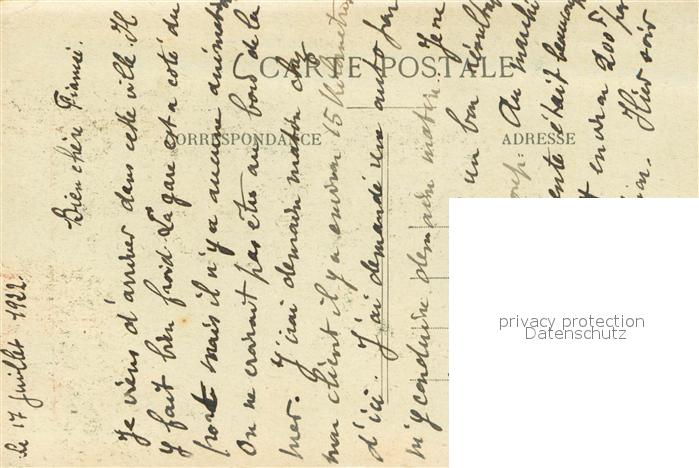 Le 17 Juillet 1922.
Bien chère Fiancée.
Je viens d'arriver dans cette ville. Il
y fait bien froid. La gare est à coté du
port mais il n'y a aucune animation
On ne croirait pas être au bord de la
mer. J'irai demain matin chez
mon client il y a environ 15 kilomètres
d'ici. J'ai demandé une auto par
m'y conduire demain matin. Je ne
un bon résultat
Au marché
était beaucoup
environ 200 F
Hier soir
CARTE POSTALE
CORRESPONDANCE
ADRESSE
privacy protection
Datenschutz